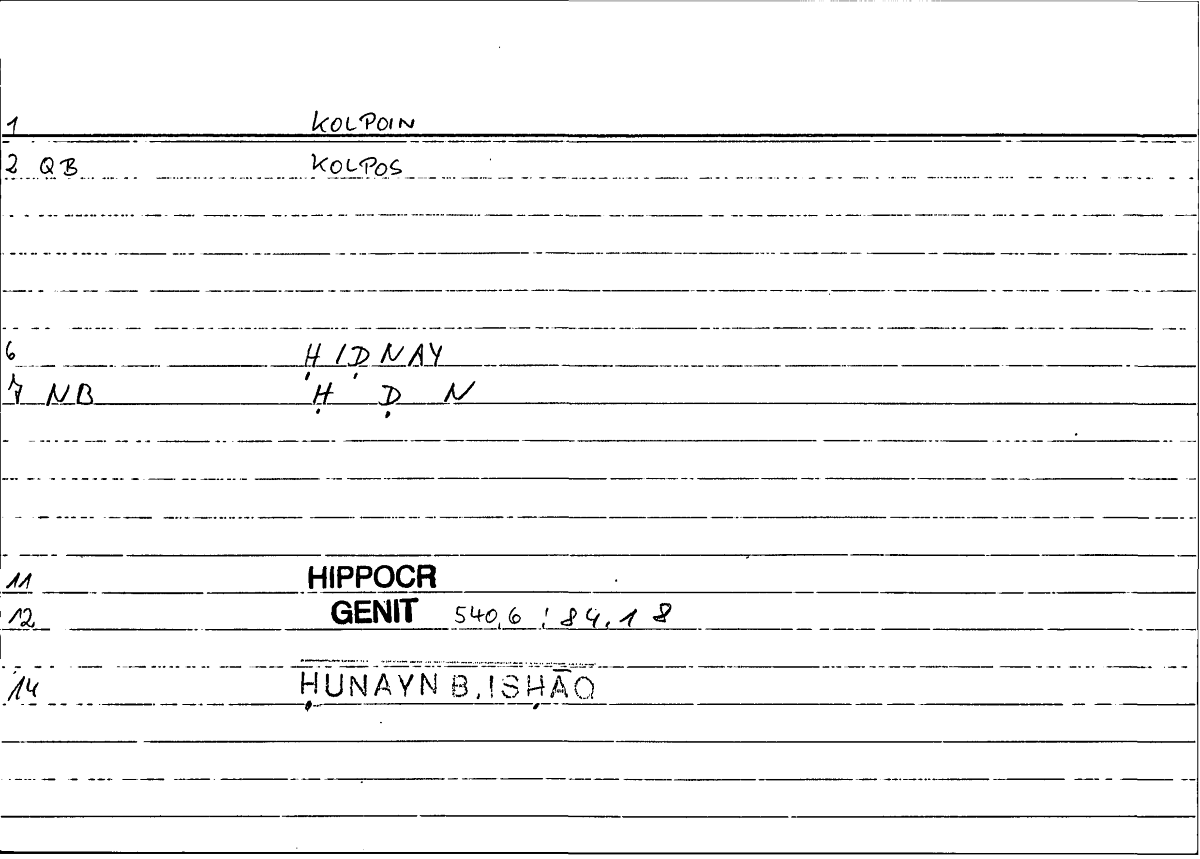 1 KOLPOIN
2 QB KOLPOS
6 ḤIḌNAY
7 NB Ḥ Ḍ N
11 HIPPOCR
12 GENIT 540,6 : 84,18
14 ḤUNAYN B. ISḤĀQ